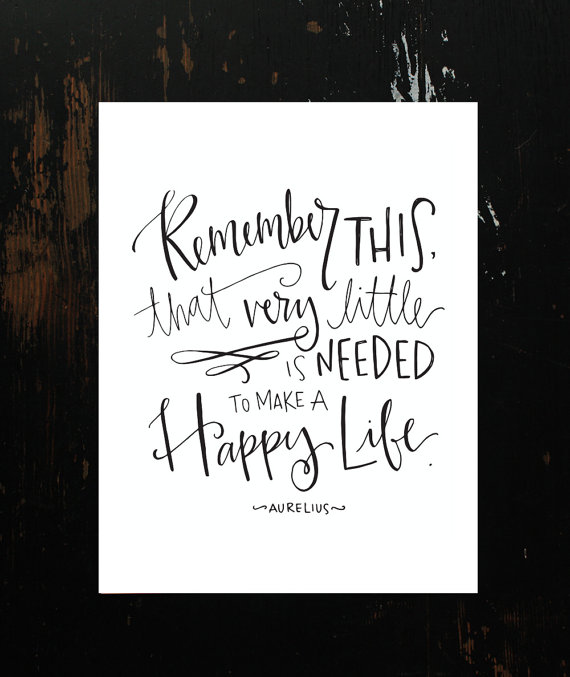 Remember THIS,
that very little
IS NEEDED
TO MAKE A
Happy Life.
~AURELIUS~